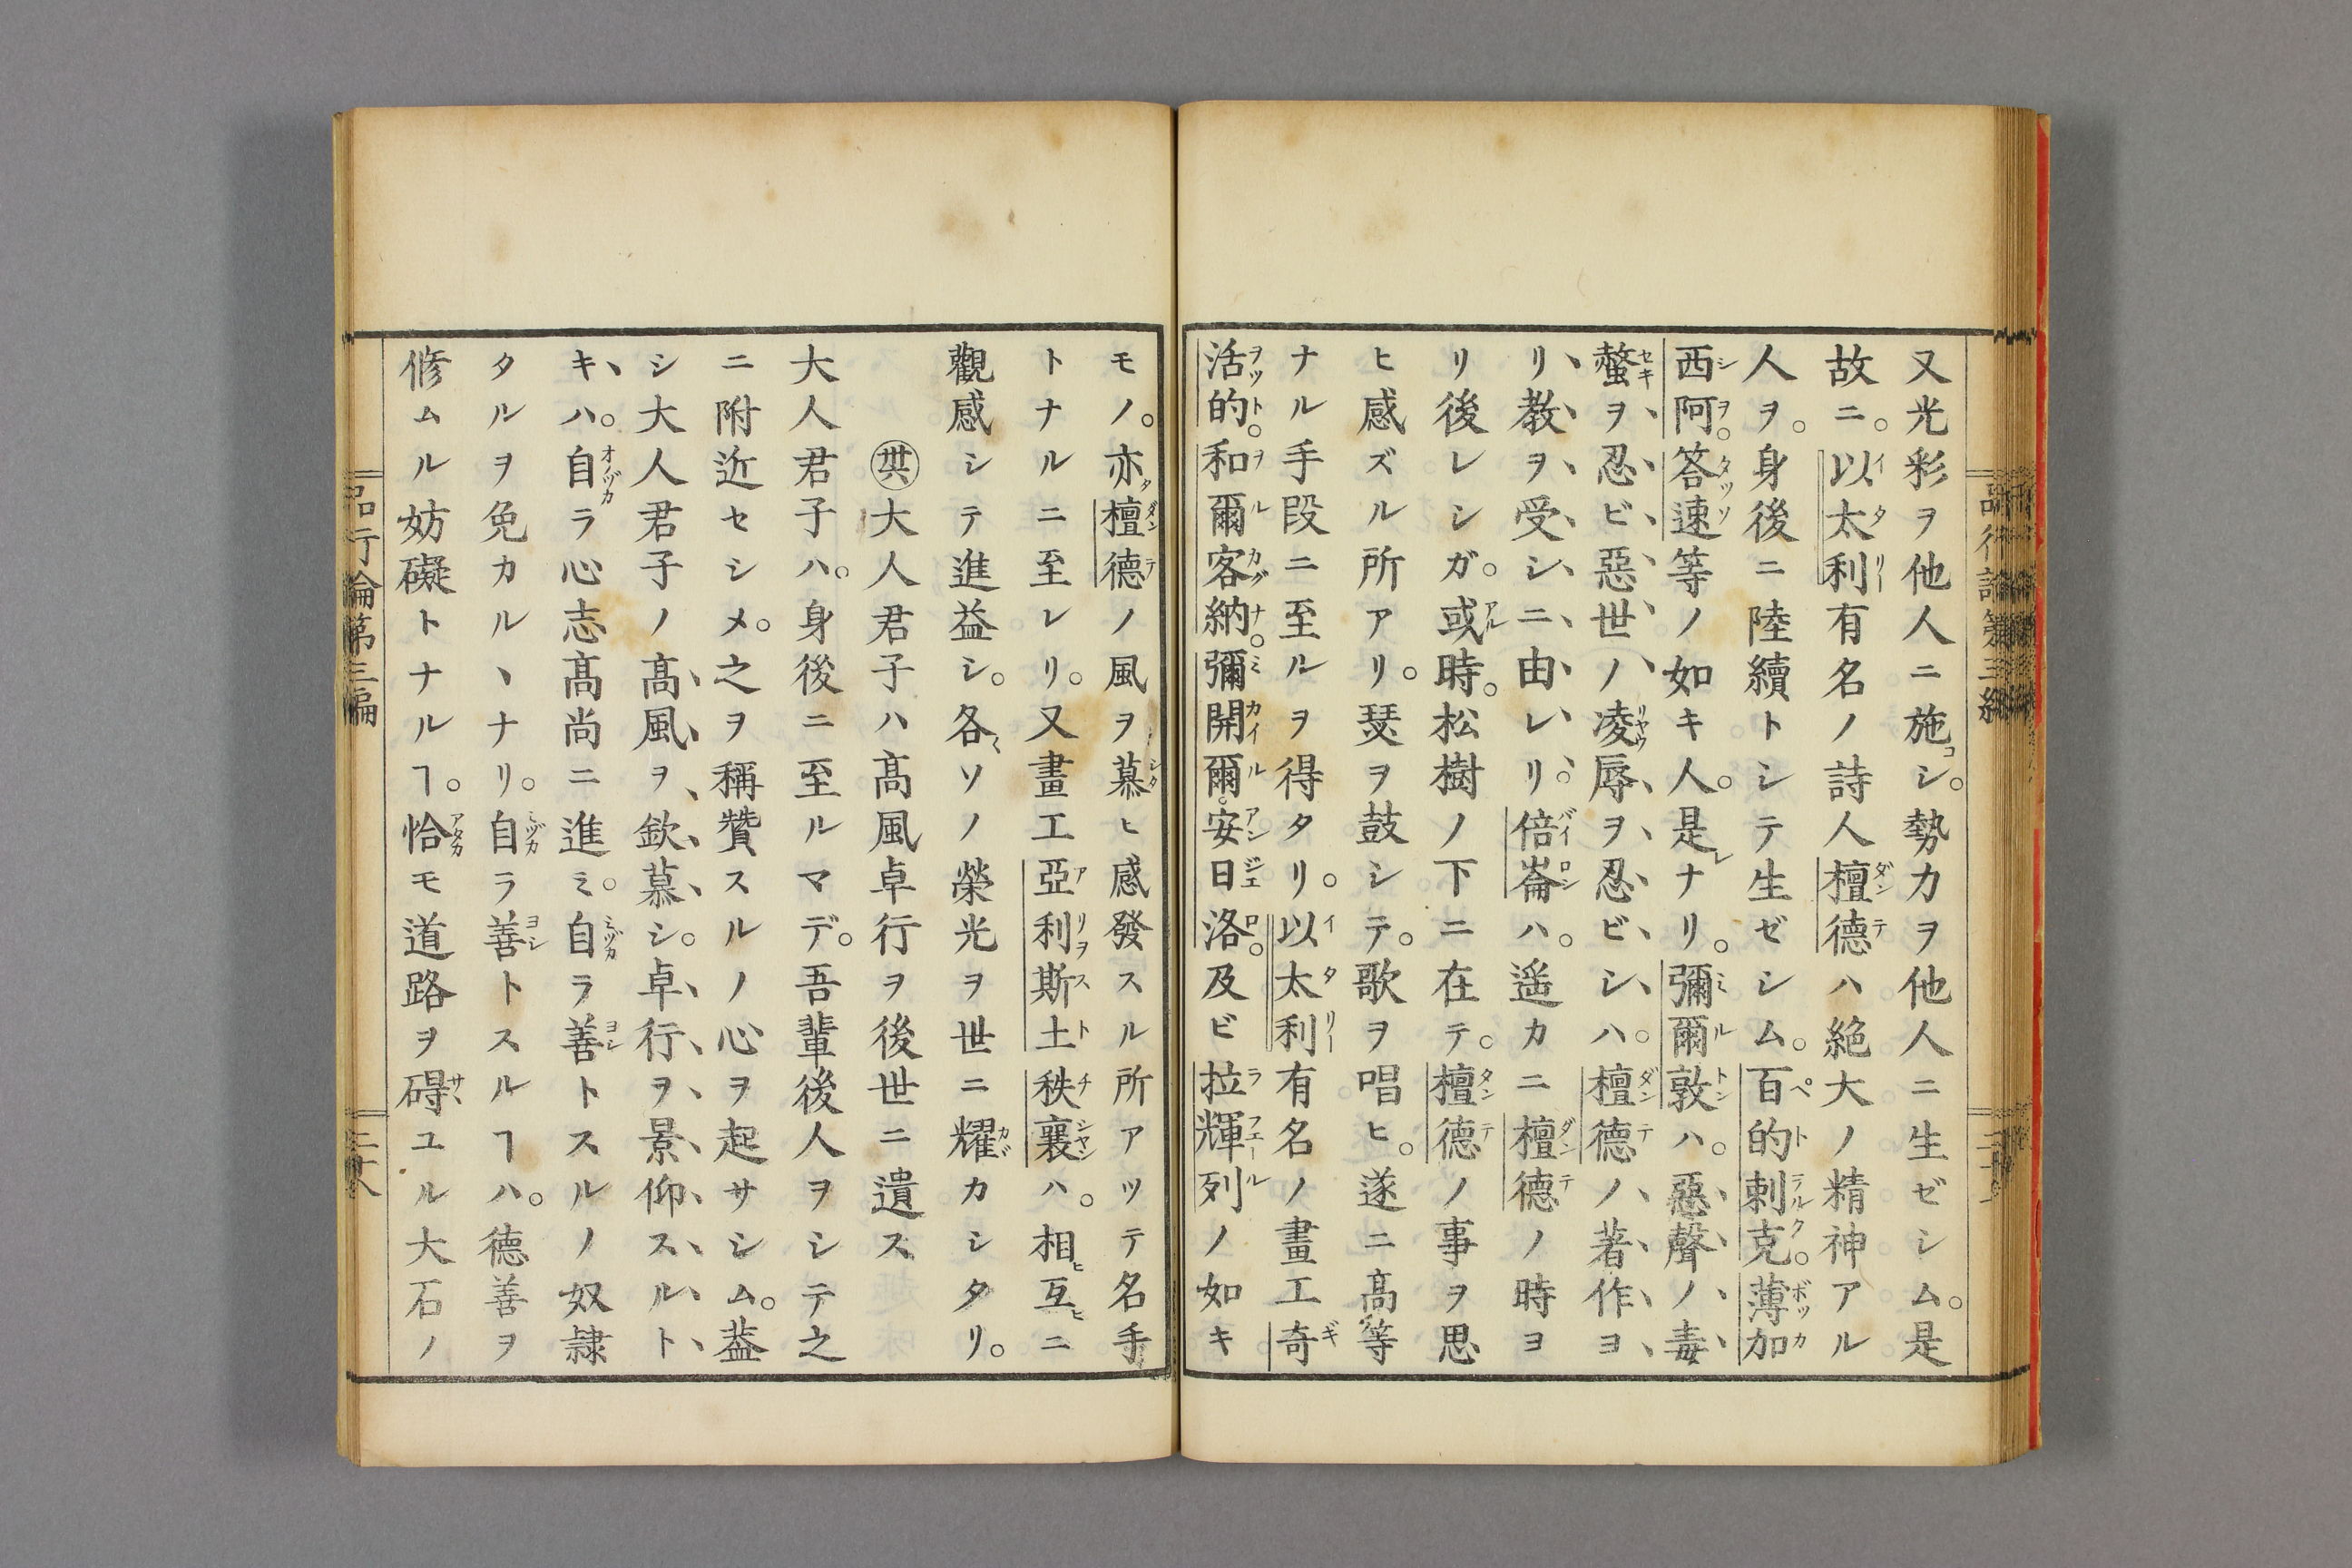 又光彩ヲ他人ニ施シ。勢力ヲ他人ニ生ゼシム。是
故ニ。以太利有名ノ詩人檀德ハ絶大ノ精神アル
人ヲ。身後ニ陸續トシテ生ゼシム。百的剌克。薄加
西阿。答速等ノ如キ人。是ナリ。彌爾敦ハ。惡聲ノ毒
螫ヲ忍ビ惡世ノ凌辱ヲ忍ビシハ。檀德ノ著作ヨ
リ教ヲ受シニ由レリ。倍崙ハ。遥カニ檀德ノ時ヨ
リ後レシガ。或時。松樹ノ下ニ在テ。檀德ノ事ヲ思
ヒ感ズル所アリ。瑟ヲ鼓シテ。歌ヲ唱ヒ。遂ニ髙等
ナル手段ニ至ルヲ得タリ。以太利有名ノ畫工奇
活的。和爾客納。彌開爾。安日洛。及ビ拉輝列ノ如キ
モノ。亦檀德ノ風ヲ慕ヒ感發スル所アツテ名手
トナルニ至レリ。又畫工亞利斯土秩襄ハ。相互ニ
觀感シテ進益シ。各ソノ榮光ヲ世ニ耀カシタリ。
大人君子ハ髙風卓行ヲ後世ニ遺ス
大人君子ハ。身後ニ至ルマデ。吾輩後人ヲシテ之
ニ附近セシメ。之ヲ稱贊スルノ心ヲ起サシム。葢
シ大人君子ノ髙風ヲ欽慕シ。卓行ヲ景仰スルト
キハ。自ラ心志髙尚ニ進ミ。自ラ善トスルノ奴隷
タルヲ免カルヽナリ。自ラ善トスルヿハ。德善ヲ
修ムル妨礙トナルヿ。恰モ道路ヲ碍ユル大石ノ
品行論第三編